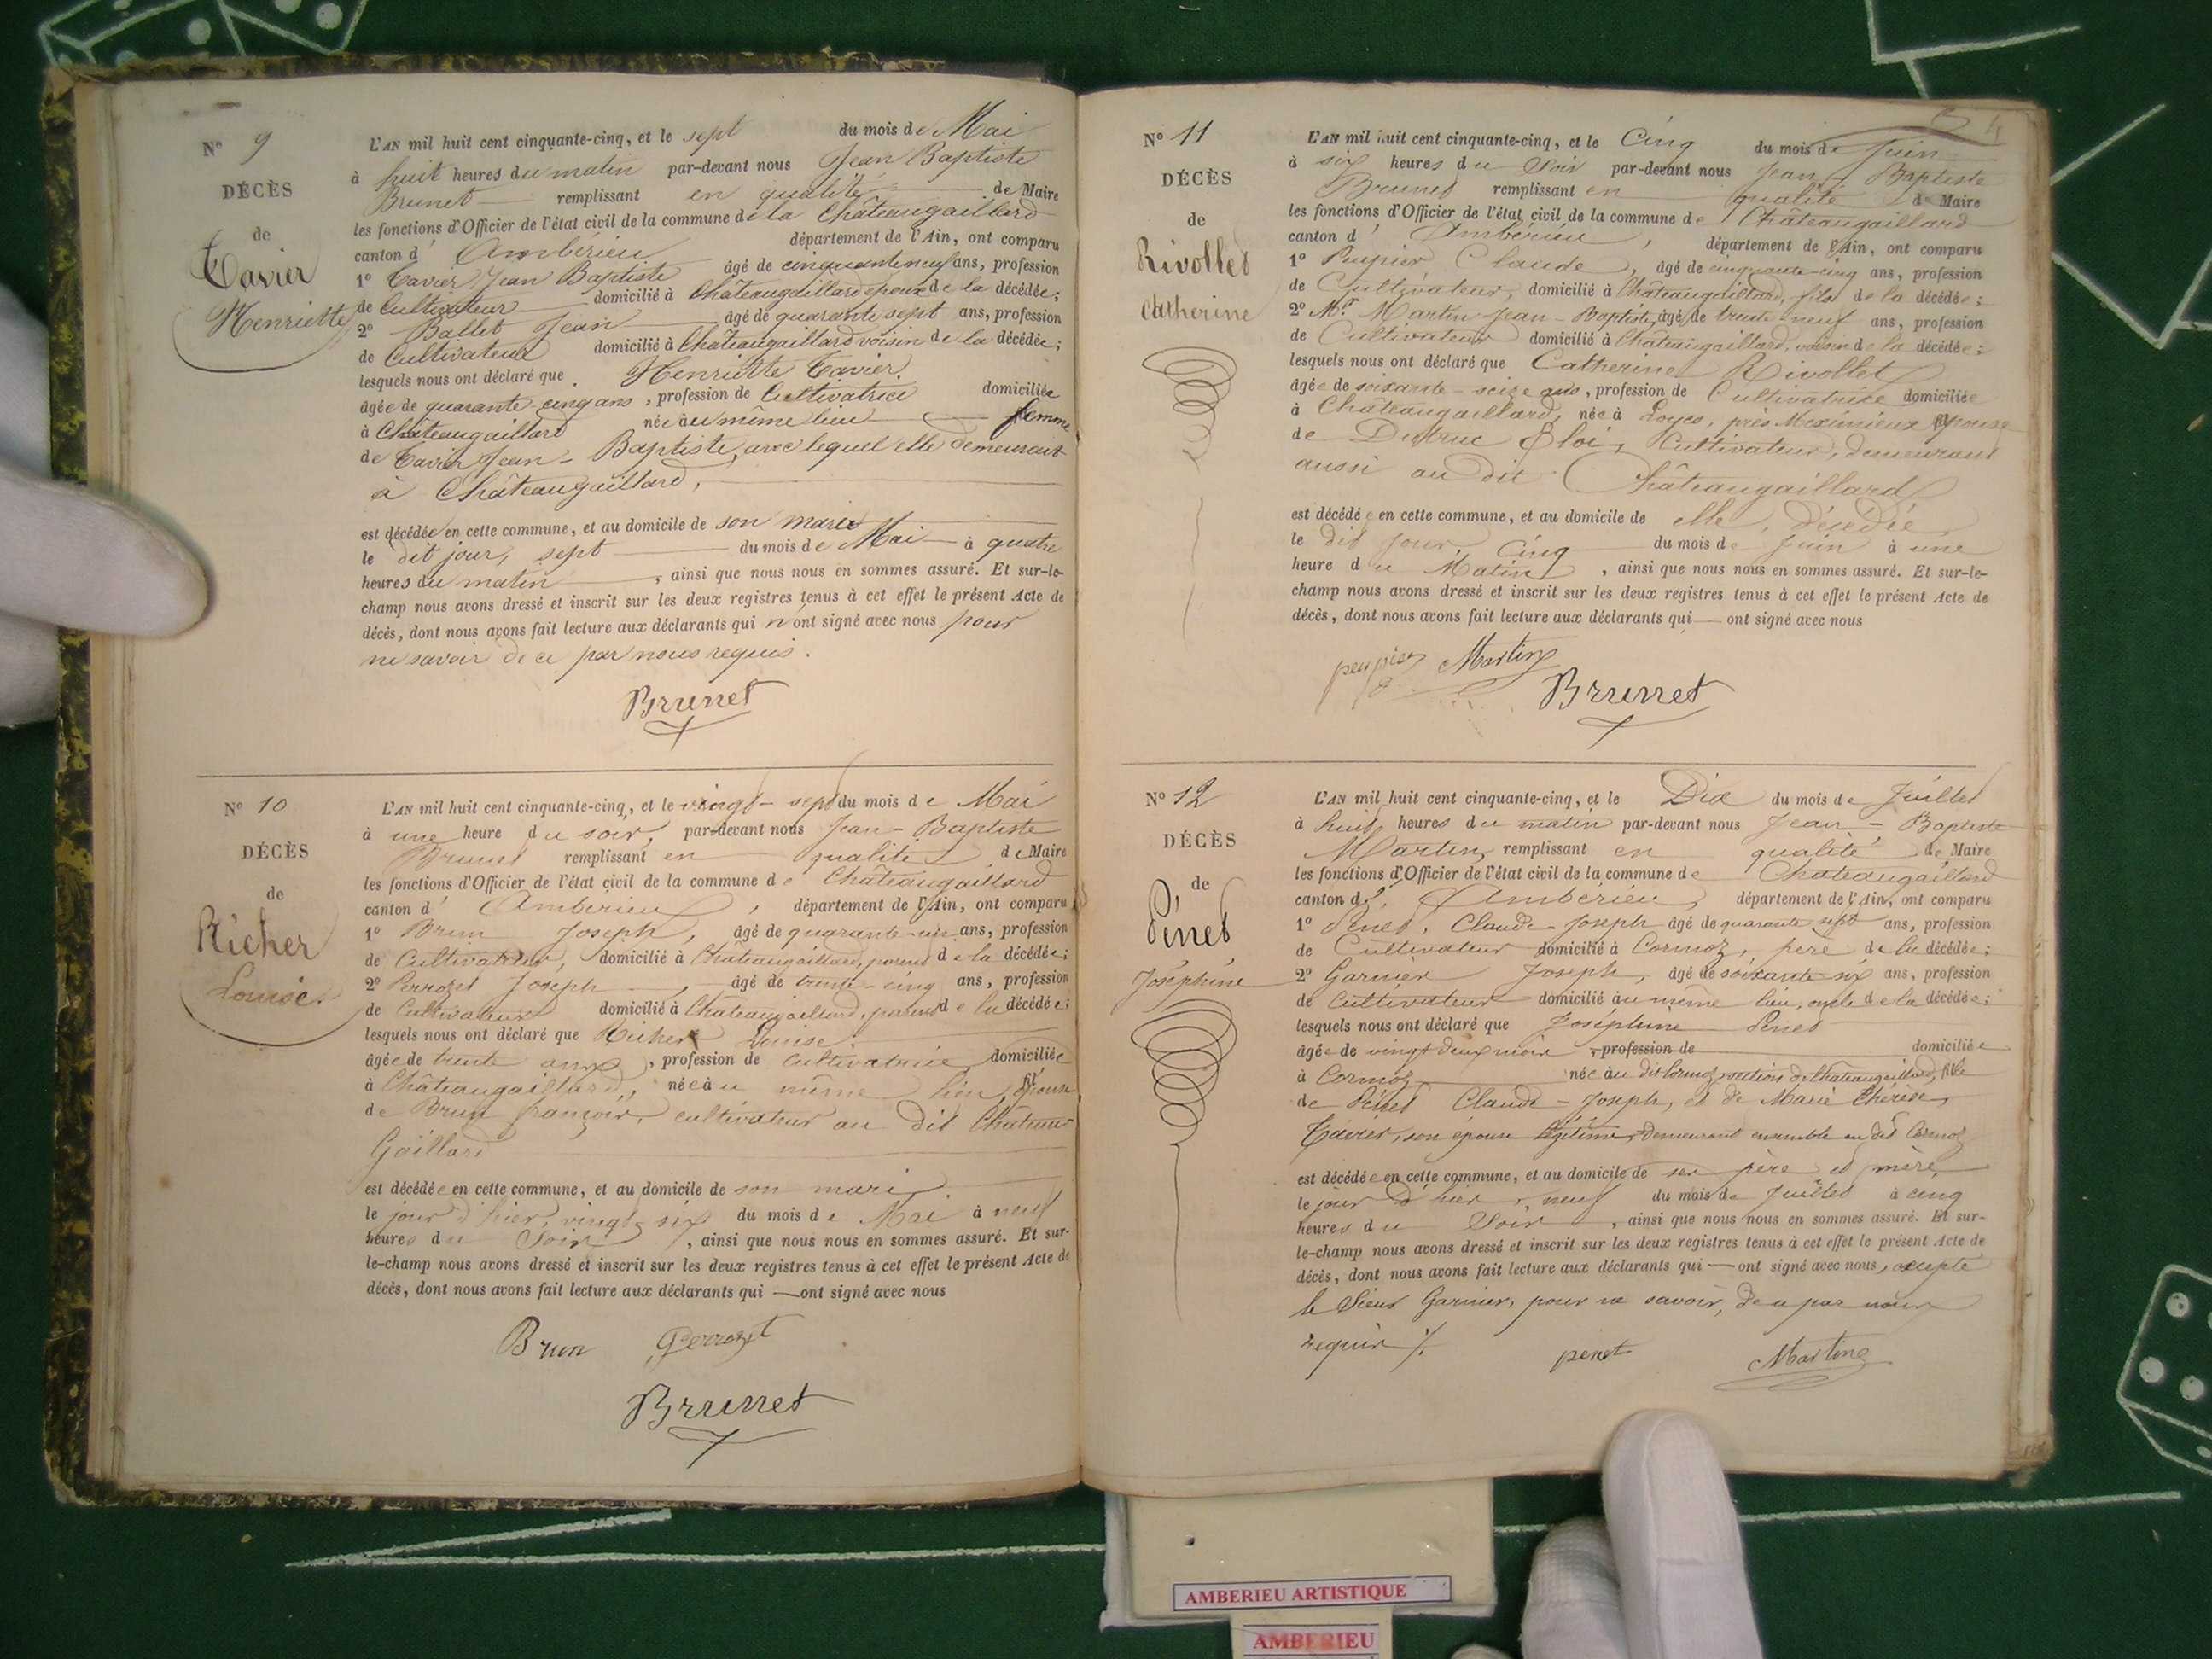 N° 9
DÉCÈS
de
Tavier
Henriette
L'AN mil huit cent cinquante-cinq, et le sept du mois de Mai
à huit heures du matin par-devant nous Jean Baptiste
Brunet remplissant en qualité de Maire
les fonctions d'Officier de l'état civil de la commune de la Châteaugaillard
canton d' Ambérieu département de l'Ain, ont comparu
1° Tavier Jean Baptiste âgé de cinquante neuf ans, profession
de Cultivateur domicilié à Châteaugaillard époux de la décédée;
2° Ballet Jean âgé de quarante sept ans, profession
de Cultivateur domicilié à Châteaugaillard voisin de la décédée;
lesquels nous ont déclaré que Henriette Tavier
âgée de quarante-cinq ans, profession de Cultivatrice domiciliée
à Châteaugaillard née au même lieu femme
de Tavier Jean-Baptiste, avec lequel elle demeurait
à Châteaugaillard,
est décédée en cette commune, et au domicile de son mari
le dit jour, sept du mois de Mai à quatre
heures du matin, ainsi que nous nous en sommes assuré. Et sur-le-
champ nous avons dressé et inscrit sur les deux registres tenus à cet effet le présent Acte de
décès, dont nous avons fait lecture aux déclarants qui n'ont signé avec nous pour
ne savoir de ce par nous requis.
Brunet
N° 10
DÉCÈS
de
Richer
Louise
L'AN mil huit cent cinquante-cinq, et le vingt-sept du mois de Mai
à une heure du soir, par-devant nous Jean-Baptiste
Brunet remplissant en qualité de Maire
les fonctions d'Officier de l'état civil de la commune de Châteaugaillard
canton d' Ambérieu, département de l'Ain, ont comparu
1° Brun Joseph, âgé de quarante-un ans, profession
de Cultivateur, domicilié à Châteaugaillard, parent de la décédée;
2° Perrozet Joseph, âgé de trente-cinq ans, profession
de Cultivateur domicilié à Châteaugaillard, parent de la décédée;
lesquels nous ont déclaré que Richer Louise
âgée de trente ans, profession de cultivatrice domiciliée
à Châteaugaillard, née au même lieu, épouse
de Brun françois, cultivateur au dit Château
Gaillard
est décédée en cette commune, et au domicile de son mari
le jour d'hier, vingt-six du mois de Mai à neuf
heures du Soir, ainsi que nous nous en sommes assuré. Et sur-
le-champ nous avons dressé et inscrit sur les deux registres tenus à cet effet le présent Acte de
décès, dont nous avons fait lecture aux déclarants qui — ont signé avec nous
Brun Perrozet
Brunet
N° 11
DÉCÈS
de
Rivollet
Catherine
L'AN mil huit cent cinquante-cinq, et le Cinq du mois de Juin
à six heures du Soir par-devant nous Jean-Baptiste
Brunet remplissant en qualité de Maire
les fonctions d'Officier de l'état civil de la commune de Châteaugaillard
canton d' Ambérieu, département de l'Ain, ont comparu
1° Peupier Claude, âgé de cinquante-cinq ans, profession
de Cultivateur, domicilié à Châteaugaillard, fils de la décédée;
2° Mr Martin Jean-Baptiste, âgé de trente neuf ans, profession
de Cultivateur domicilié à Châteaugaillard, voisin de la décédée;
lesquels nous ont déclaré que Catherine Rivollet
âgée de soixante-seize ans, profession de Cultivatrice domiciliée
à Châteaugaillard, née à Loyes, près Meximieux épouse
de Dutruc Eloi, Cultivateur, demeurant
aussi au dit Châteaugaillard
est décédée en cette commune, et au domicile de elle, décédée
le dit jour, Cinq du mois de Juin à une
heure du Matin, ainsi que nous nous en sommes assuré. Et sur-le-
champ nous avons dressé et inscrit sur les deux registres tenus à cet effet le présent Acte de
décès, dont nous avons fait lecture aux déclarants qui — ont signé avec nous
peupier Martin
Brunet
N° 12
DÉCÈS
de
Pénet
Joséphine
L'AN mil huit cent cinquante-cinq, et le Dix du mois de Juillet
à huit heures du matin par-devant nous Jean-Baptiste
Martin, remplissant en qualité de Maire
les fonctions d'Officier de l'état civil de la commune de Châteaugaillard
canton d' Ambérieu, département de l'Ain, ont comparu
1° Pénet, Claude-Joseph âgé de quarante sept ans, profession
de Cultivateur domicilié à Cormoz, père de la décédée;
2° Garnier Joseph, âgé de soixante-six ans, profession
de Cultivateur domicilié au même lieu, oncle de la décédée;
lesquels nous ont déclaré que Joséphine Pénet
âgée de vingt deux mois, profession de domiciliée
à Cormoz née au dit Cormoz, section de Châteaugaillard, fille
de Pénet Claude-Joseph, et de Marie Thérèse,
Tavier, son épouse légitime, demeurant ensemble au dit Cormoz
est décédée en cette commune, et au domicile de ses père et mère
le jour d'hier, neuf du mois de Juillet à cinq
heures du Soir, ainsi que nous nous en sommes assuré. Et sur-
le-champ nous avons dressé et inscrit sur les deux registres tenus à cet effet le présent Acte de
décès, dont nous avons fait lecture aux déclarants qui — ont signé avec nous, excepté
le Sieur Garnier, pour ne savoir, de ce par nous
requis ./.
penet Martin
AMBERIEU ARTISTIQUE
AMBERIEU